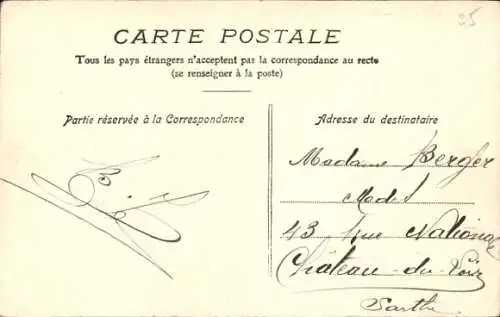 25
CARTE POSTALE
Tous les pays étrangers n'acceptent pas la correspondance au recto
(se renseigner à la poste)
Partie réservée à la Correspondance
Adresse du destinataire
Madame Berger
43 Rue Nationale
Château-du-Loir
Sarthe